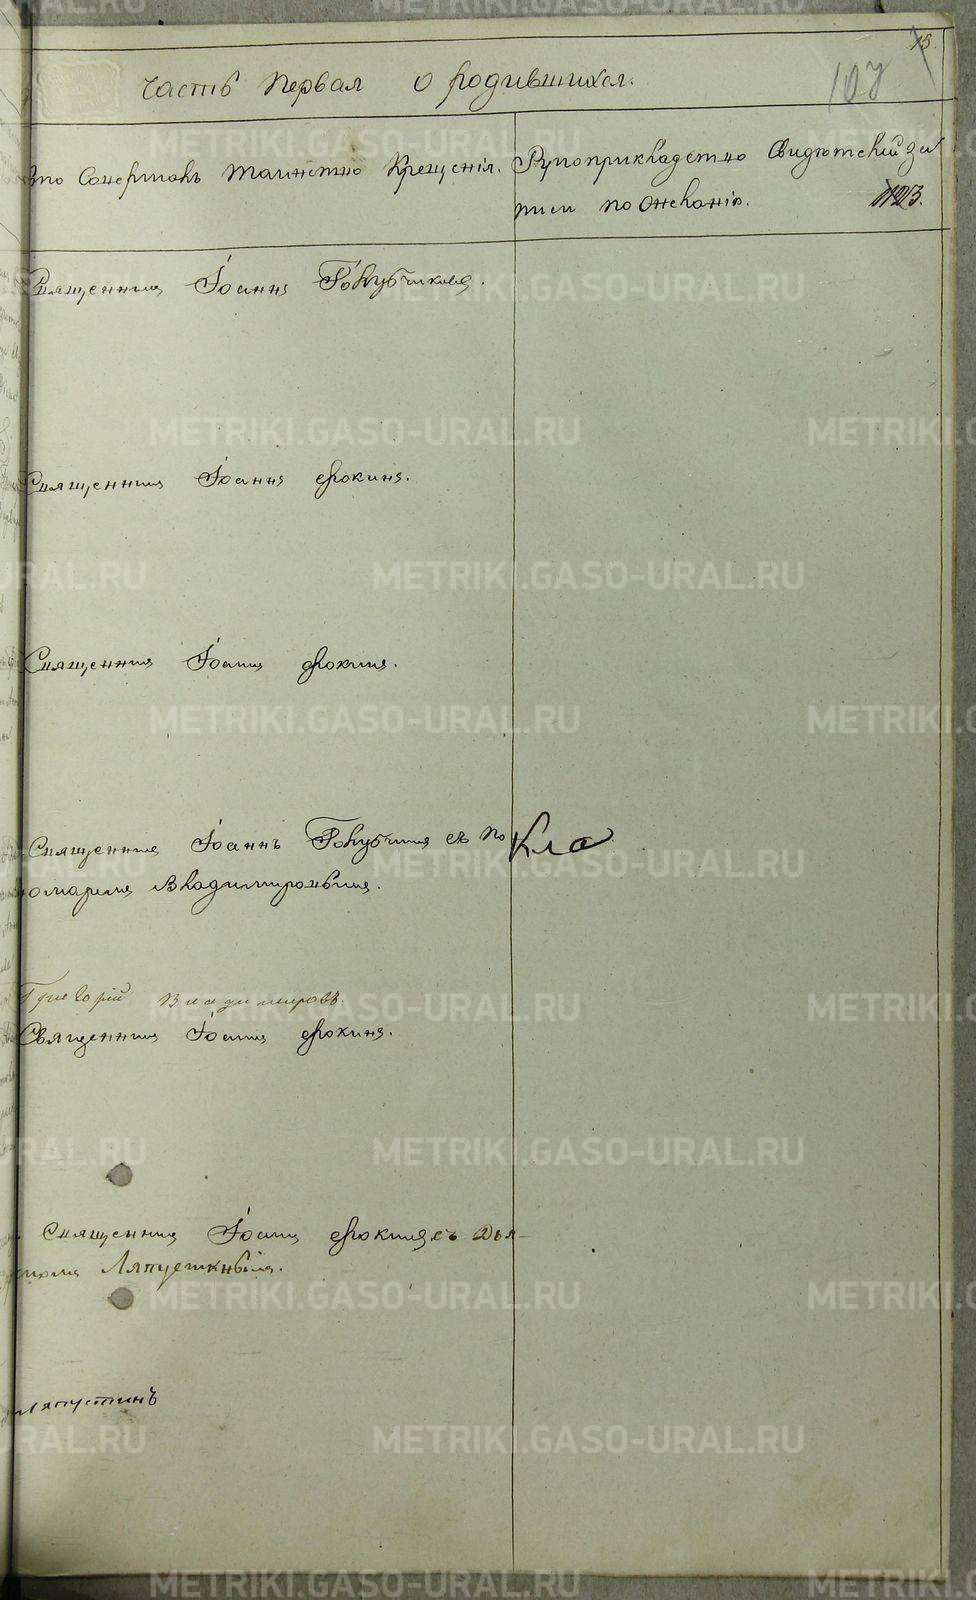 15.
107
Часть Первая О родившихся.
Кто Совершалъ таинство Крещенія.
Рукоприкладство Свидѣтелей за
писи по желанію.
123.
Священникъ Іоаннъ Голубчиковъ.
Священникъ Іоаннъ Фокинъ.
Священникъ Іоаннъ Фокинъ.
Священникъ Іоаннъ Голубчиковъ съ По
номаремъ Владимировымъ.
Григорій Владимировъ.
Священникъ Іоаннъ Фокинъ.
Священникъ Іоаннъ Фокинъ съ Дья-
Ляпустинымъ.
Ляпустинъ
METRIKI.GASO-URAL.RU